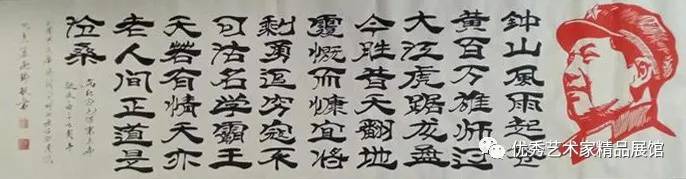 鐘山風雨起苍
黄百万雄师过
大江虎踞龙盘
今胜昔天翻地
覆慨而慷宜将
剩勇追穷寇不
可沽名学霸王
天若有情天亦
老人间正道是
沧桑
优秀艺术家精品展馆